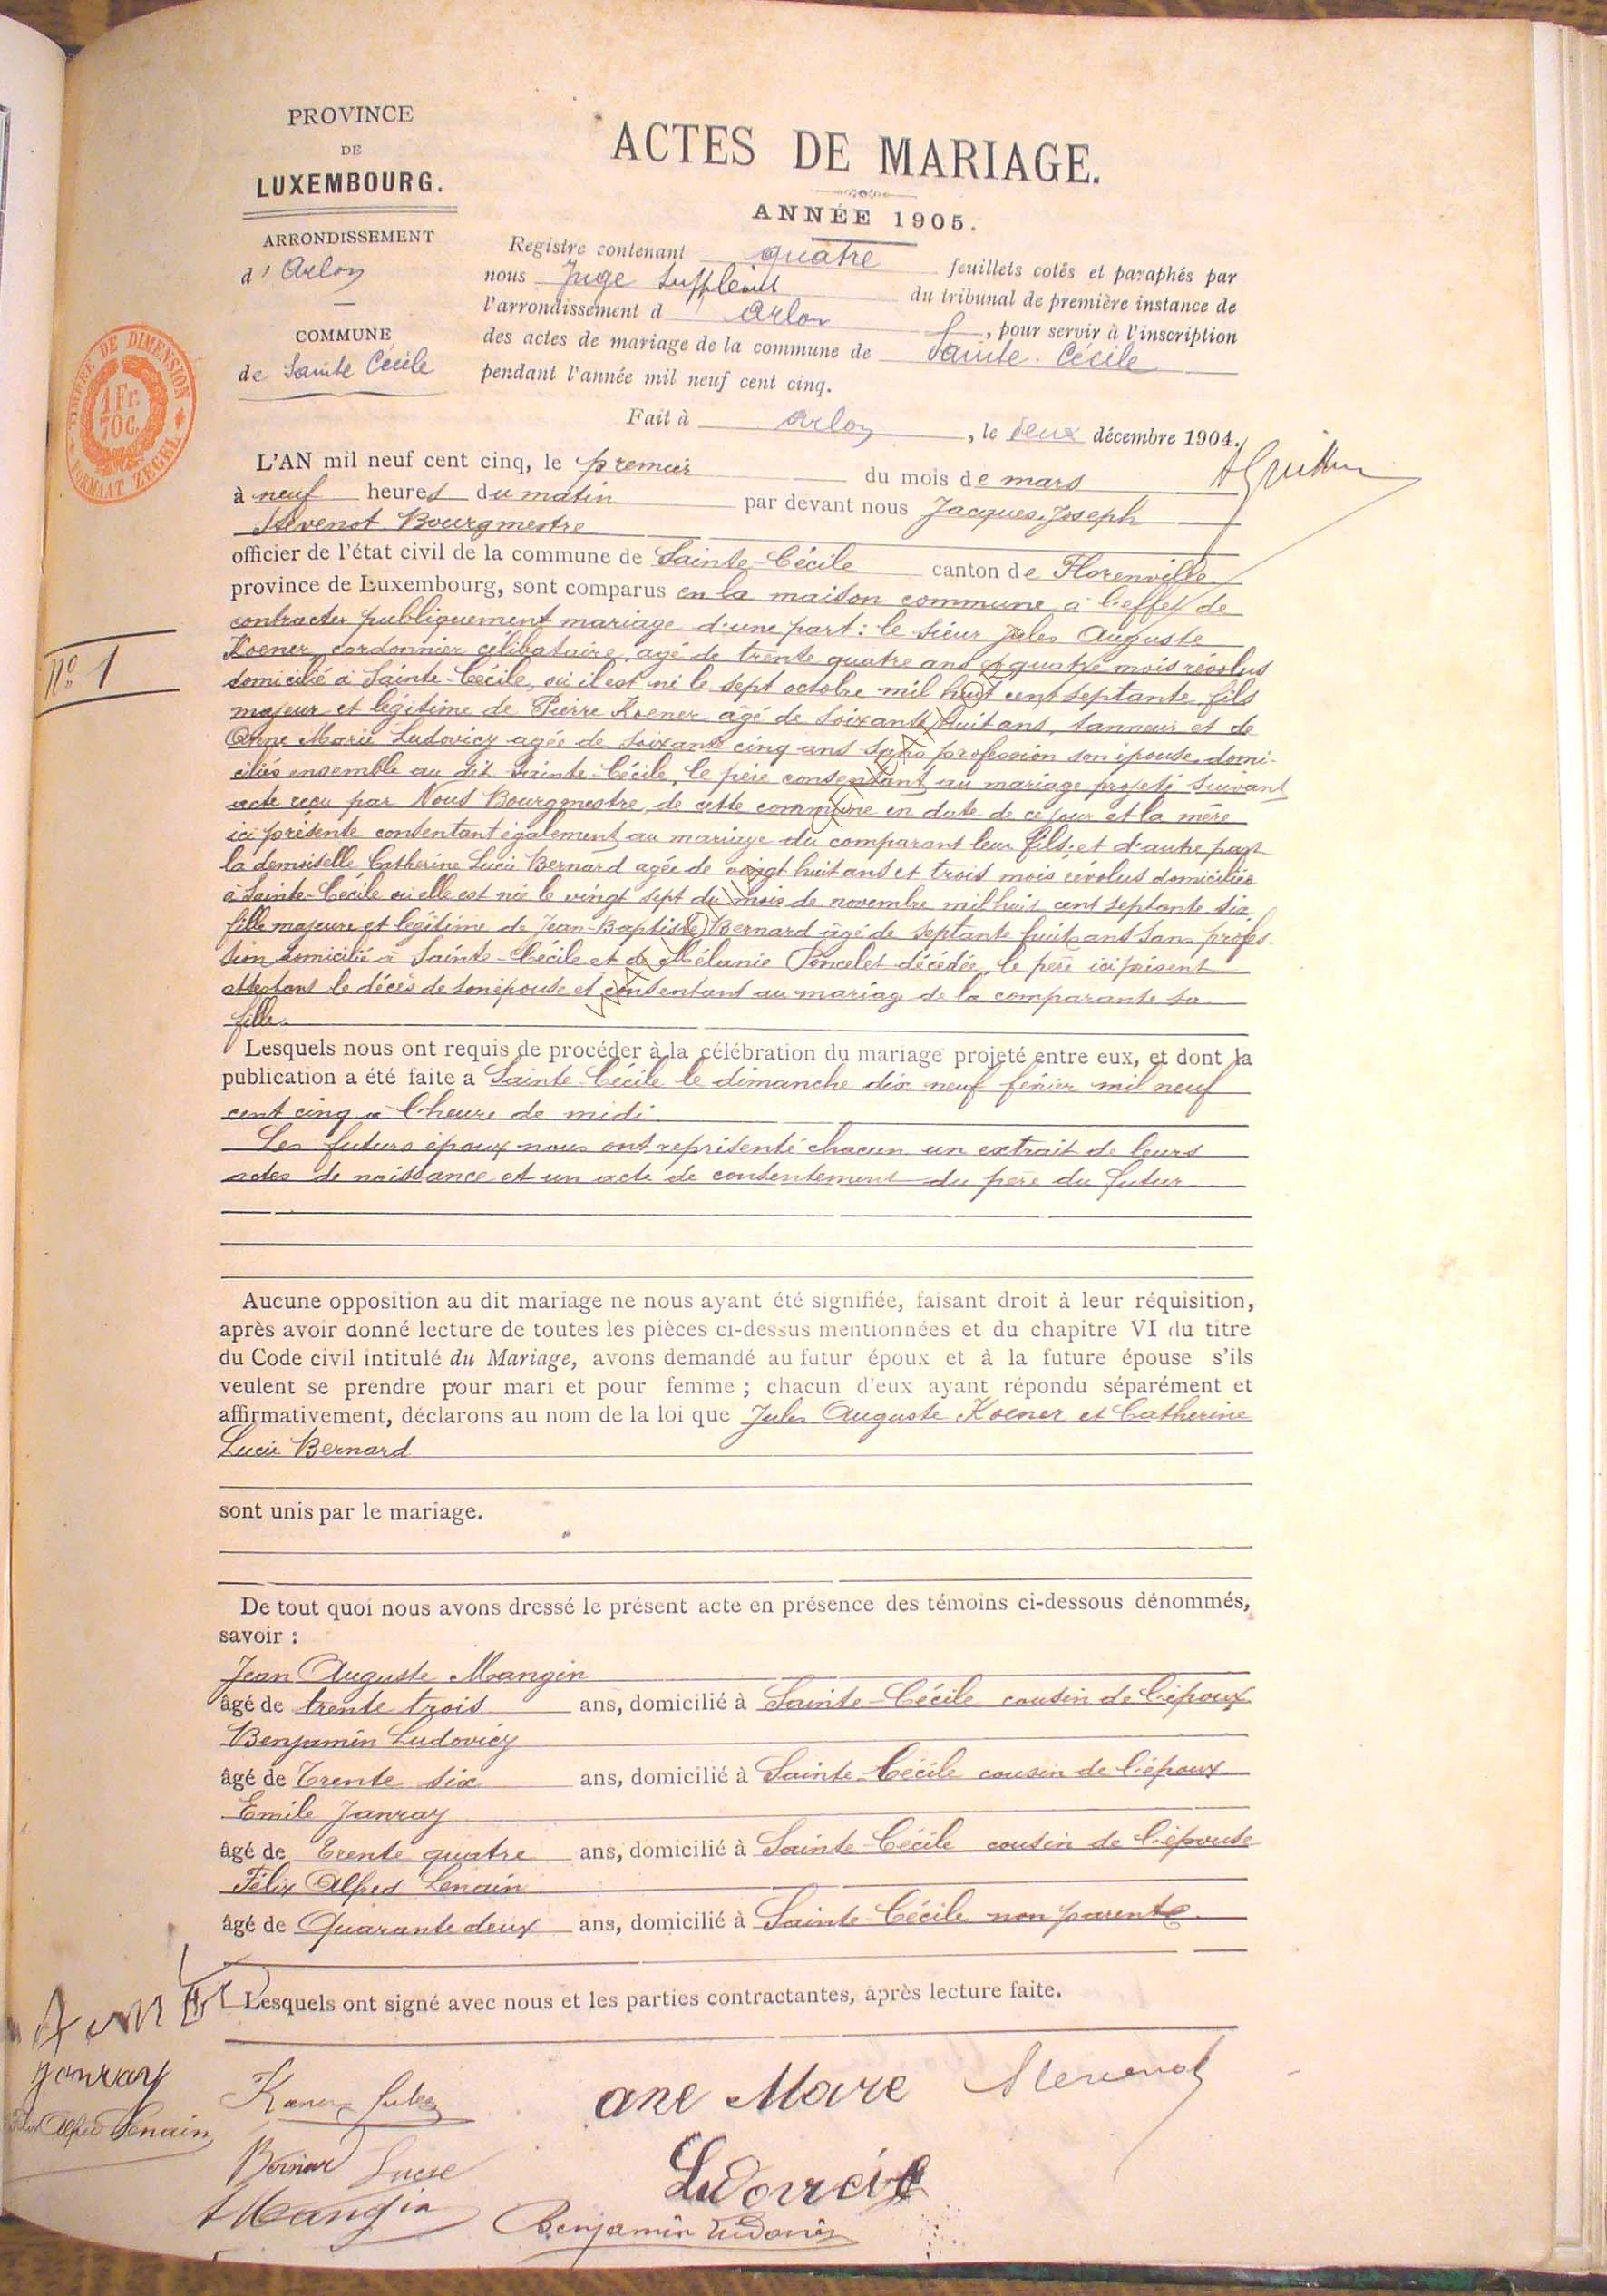 PROVINCE
DE
LUXEMBOURG.
ARRONDISSEMENT
d'Arlon
COMMUNE
de Sainte Cécile
TIMBRE DE DIMENSION
1 Fr.
70 C.
FORMAAT ZEGEL
ACTES DE MARIAGE.
ANNÉE 1905.
Registre contenant quatre feuillets cotés et paraphés par
nous Juge Suppléant du tribunal de première instance de
l'arrondissement d'Arlon, pour servir à l'inscription
des actes de mariage de la commune de Sainte-Cécile
pendant l'année mil neuf cent cinq.
Fait à Arlon, le deux décembre 1904.
Nº 1
L'AN mil neuf cent cinq, le premier du mois de mars
à neuf heures du matin par devant nous Jacques Joseph
Stevenot Bourgmestre
officier de l'état civil de la commune de Sainte-Cécile canton de Florenville
province de Luxembourg, sont comparus en la maison commune à l'effet de
contracter publiquement mariage d'une part : le sieur Jules Auguste
Koener, cordonnier célibataire, agé de trente quatre ans et quatre mois révolus
domicilié à Sainte-Cécile, où il est né le sept octobre mil huit cent septante fils
majeur et légitime de Pierre Koener âgé de soixante huit ans, tanneur et de
Anne Marie Ludovicy agée de soixante cinq ans sans profession son épouse, domi-
ciliés ensemble au dit Sainte-Cécile, le père consentant au mariage projeté suivant
acte reçu par Nous Bourgmestre de cette commune en date de ce jour et la mère
ici présente consentant également au mariage du comparant leur fils, et d'autre part
la demoiselle Catherine Lucie Bernard agée de vingt huit ans et trois mois révolus domiciliée
à Sainte-Cécile où elle est née le vingt sept du mois de novembre mil huit cent septante six
fille majeure et légitime de Jean-Baptiste Bernard âgé de septante huit ans sans profes-
sion domicilié à Sainte-Cécile et de Mélanie Poncelet décédée, le père ici présent
attestant le décès de son épouse et consentant au mariage de la comparante sa
fille.
Lesquels nous ont requis de procéder à la célébration du mariage projeté entre eux, et dont la
publication a été faite a Sainte-Cécile le dimanche dix neuf février mil neuf
cent cinq à l'heure de midi.
Les futurs époux nous ont représenté chacun un extrait de leurs
actes de naissance et un acte de consentement du père du futur
Aucune opposition au dit mariage ne nous ayant été signifiée, faisant droit à leur réquisition,
après avoir donné lecture de toutes les pièces ci-dessus mentionnées et du chapitre VI du titre
du Code civil intitulé du Mariage, avons demandé au futur époux et à la future épouse s'ils
veulent se prendre pour mari et pour femme ; chacun d'eux ayant répondu séparément et
affirmativement, déclarons au nom de la loi que Jules Auguste Koener et Catherine
Lucie Bernard
sont unis par le mariage.
De tout quoi nous avons dressé le présent acte en présence des témoins ci-dessous dénommés,
savoir :
Jean Auguste Mangin
âgé de trente trois ans, domicilié à Sainte-Cécile cousin de l'époux
Benjamin Ludovicy
âgé de Trente six ans, domicilié à Sainte-Cécile cousin de l'époux
Emile Janray
âgé de Trente quatre ans, domicilié à Sainte-Cécile cousin de l'épouse
Félix Alfred Lenain
âgé de Quarante deux ans, domicilié à Sainte-Cécile non parent
Lesquels ont signé avec nous et les parties contractantes, après lecture faite.
Janray
Alfred Lenain
Koener Jules
ane Marie
Stevenot
Bernard Lucie
Ludovicie
A Mangin
Benjamin Ludovicy